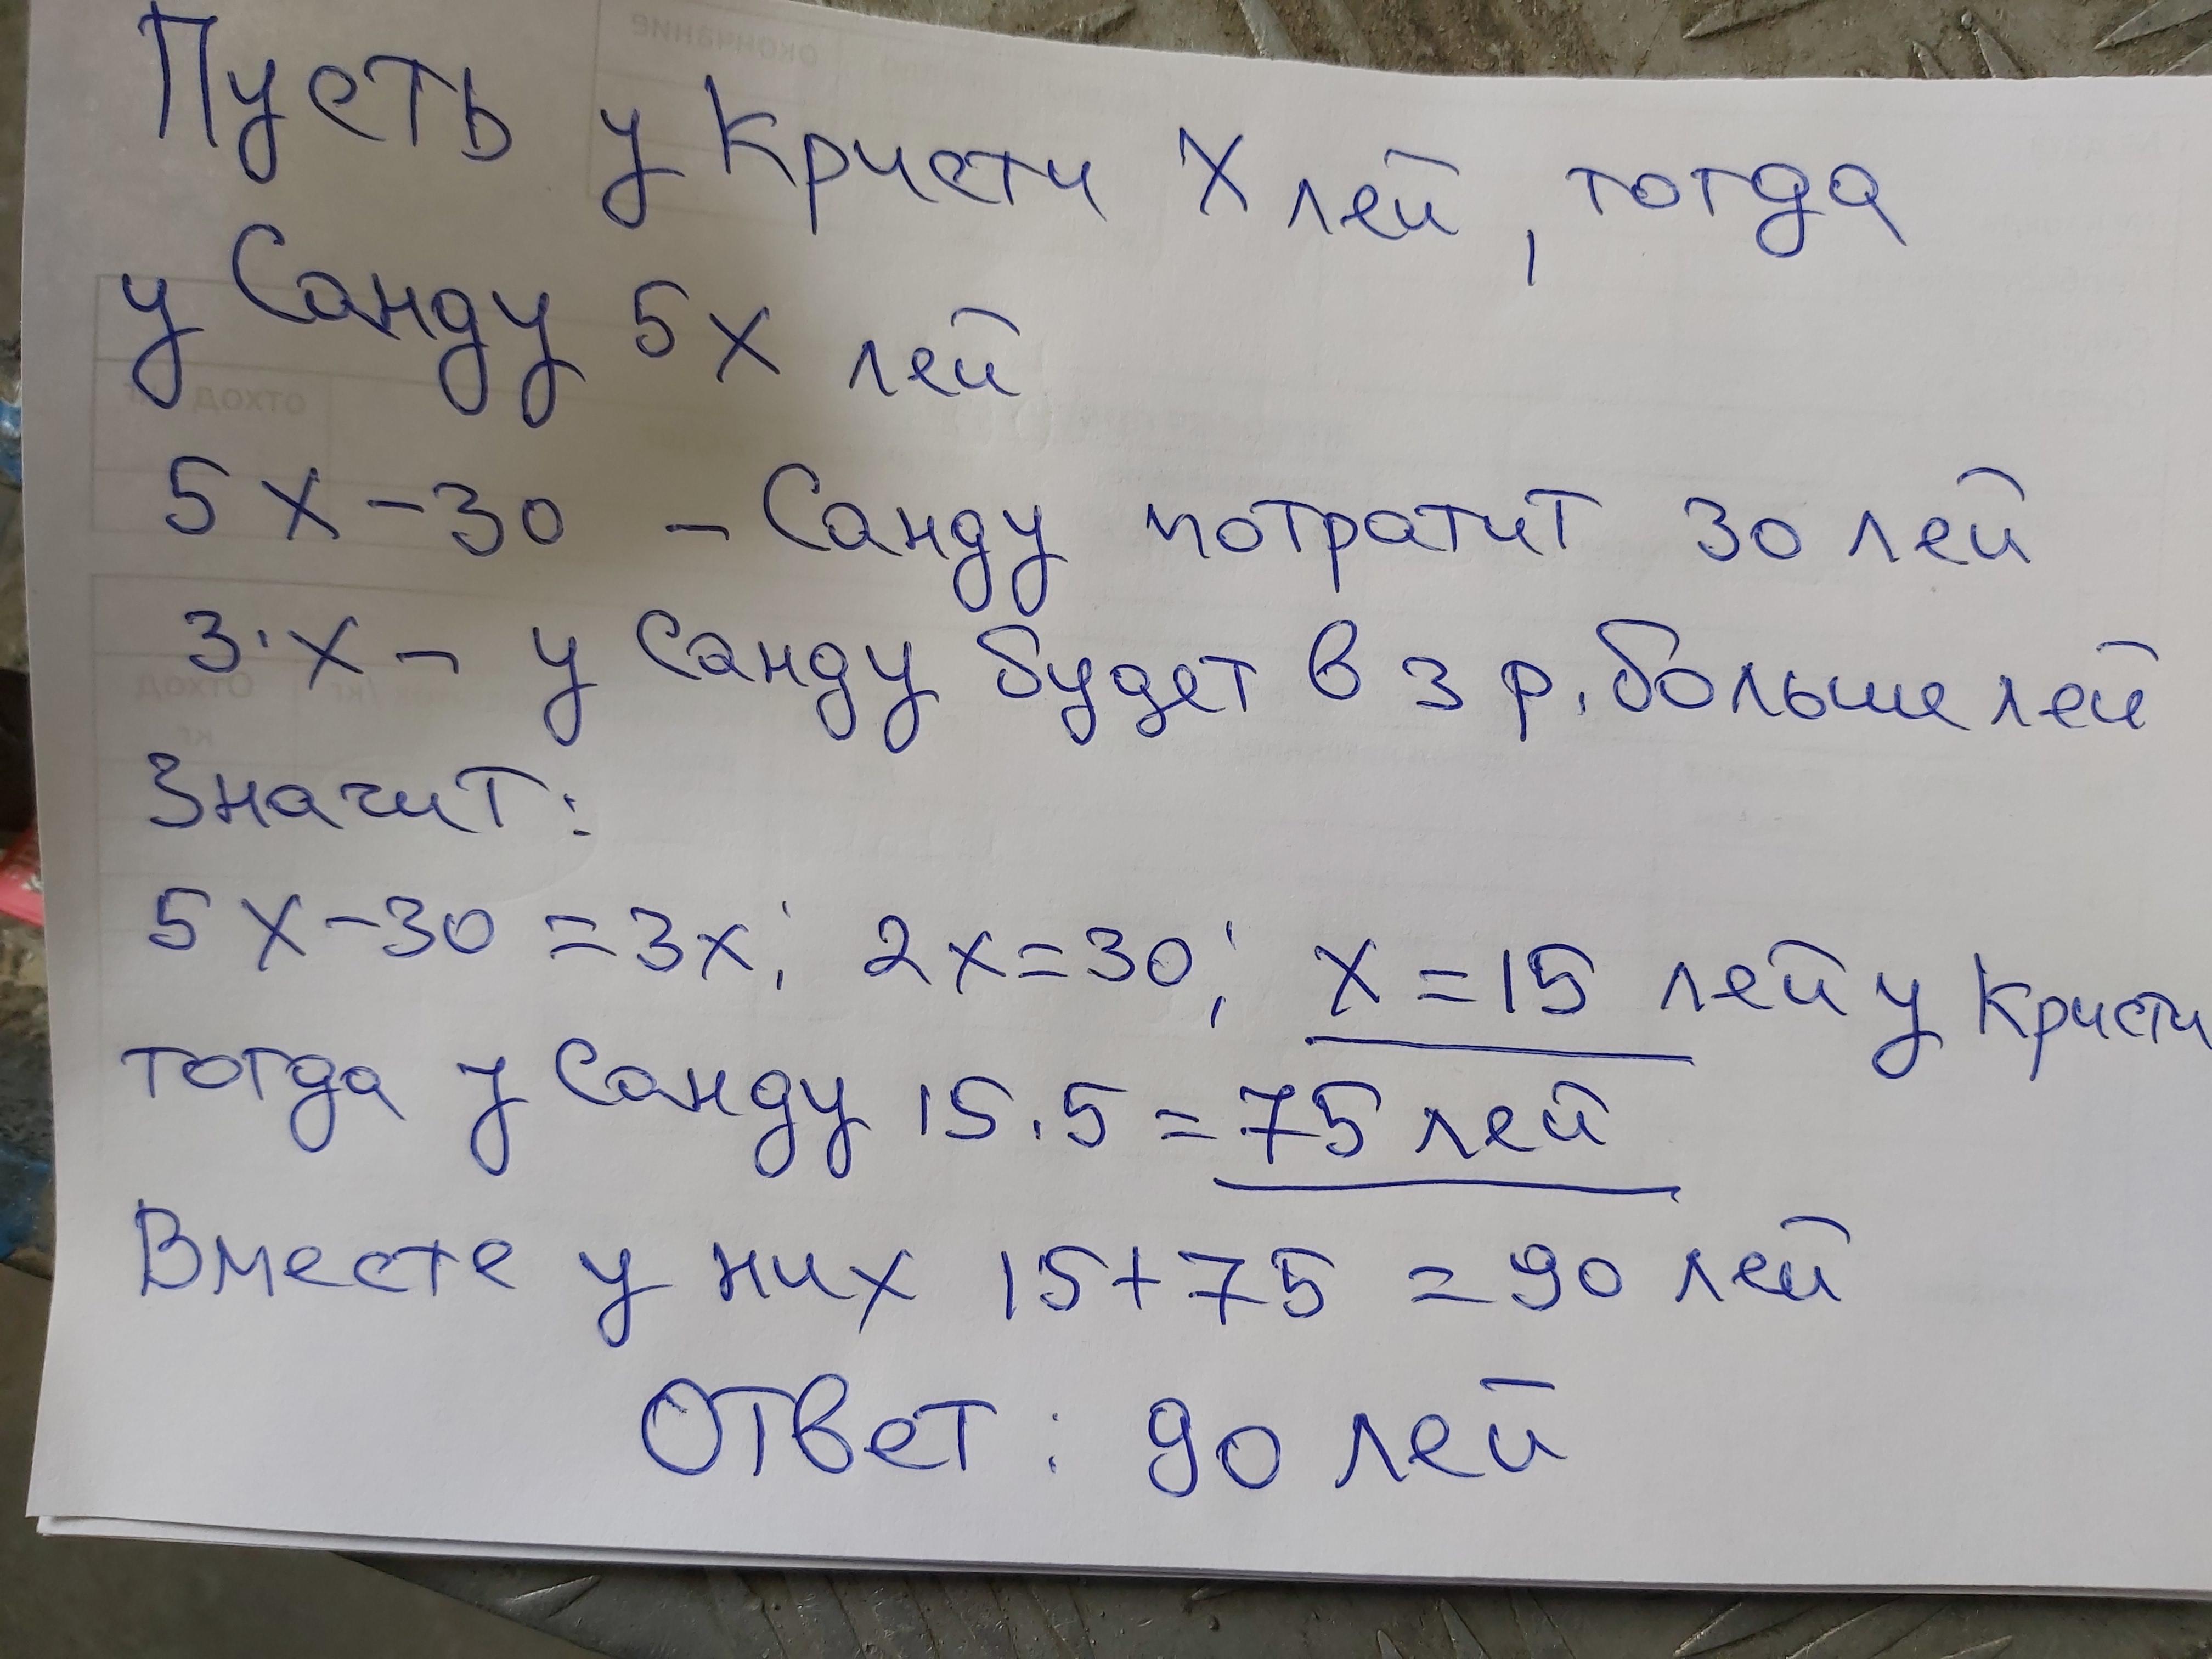 Пусть у Кристи X лей, тогда
у Санду 5X лей
5X-30 - Санду потратит 30 лей
3·X - у Санду будет в 3 р. больше лей
Значит:
5X-30=3x; 2x=30; X=15 лей у Кристи
тогда у Санду 15.5=75 лей
Вместе у них 15+75=90 лей
Ответ: 90 лей